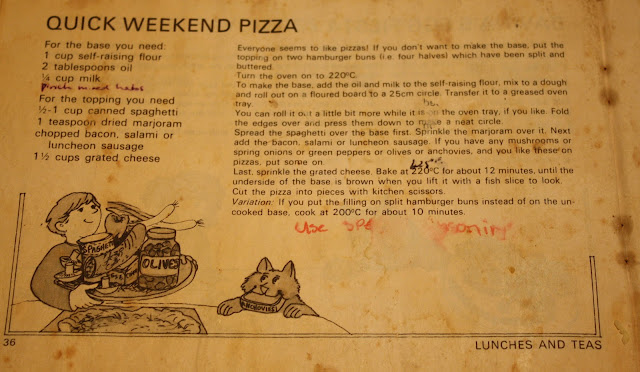 QUICK WEEKEND PIZZA
For the base you need:
1 cup self-raising flour
2 tablespoons oil
¼ cup milk
pinch mixed herbs
For the topping you need
½-1 cup canned spaghetti
1 teaspoon dried marjoram
chopped bacon, salami or
luncheon sausage
1½ cups grated cheese
Everyone seems to like pizzas! If you don't want to make the base, put the
topping on two hamburger buns (i.e. four halves) which have been split and
buttered.
Turn the oven on to 220ºC.
To make the base, add the oil and milk to the self-raising flour, mix to a dough
and roll out on a floured board to a 25cm circle. Transfer it to a greased oven
tray.
You can roll it out a little bit more while it is on the oven tray, if you like. Fold
the edges over and press them down to make a neat circle.
Spread the spaghetti over the base first. Sprinkle the marjoram over it. Next
add the bacon, salami or luncheon sausage. If you have any mushrooms or
spring onions or green peppers or olives or anchovies, and you like these on
pizzas, put some on.
Last, sprinkle the grated cheese. Bake at 220ºC for about 12 minutes, until the
underside of the base is brown when you lift it with a fish slice to look.
Cut the pizza into pieces with kitchen scissors.
Variation: If you put the filling on split hamburger buns instead of on the un-
cooked base, cook at 200ºC for about 10 minutes.
Use
SPAGHETTI
OLIVES
ANCHOVIES
36
LUNCHES AND TEAS